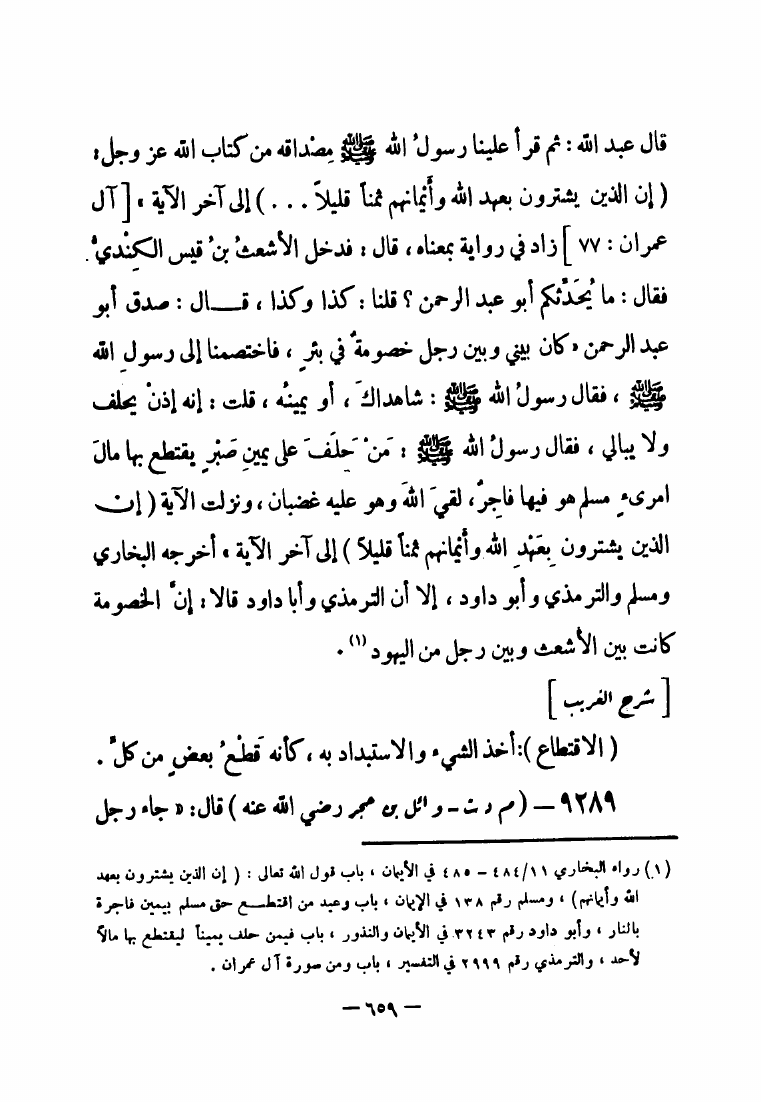 قال عبد الله : ثم قرأ علينا رسولُ الله ﷺ مِصْداقه من كتاب الله عز وجل :
( إن الذين يشترون بعهد الله وأَيْمانهم ثمناً قليلاً ... ) إلى آخر الآية » [ آل
عمران : ٧٧ ] زاد في رواية بمعناه ، قال : فدخل الأشعثُ بنُ قيس الكِنْديُّ .
فقال : ما يُحَدِّثكم أبو عبد الرحمن ؟ قلنا : كذا وكذا ، قـــال : صدق أبو
عبد الرحمن « كان بيني وبين رجل خصومةٌ في بئرٍ ، فاختصمنا إلى رسولِ الله
ﷺ ، فقال رسولُ الله ﷺ : شاهداكَ ، أو يمينُه ، قلت : إنه إذنْ يحلف
ولا يبالي ، فقال رسولُ الله ﷺ : مَنْ حَلَفَ على يمينِ صَبْرٍ يقتطع بها مالَ
امرىءٍ مسلم هو فيها فاجِرٌ ، لقيَ اللهَ وهو عليه غضبان ، ونزلت الآية ( إن
الذين يشترون بِعَهْدِ الله وأَيْمانهم ثمناً قليلاً ) إلى آخر الآية » أخرجه البخاري
ومسلم والترمذي وأبو داود ، إلا أن الترمذي وأبا داود قالا : إنَّ الخصومة
كانت بين الأشعث وبين رجل من اليهود (١) .
[ شرح الغريب ]
( الاقتطاع ) : أخذ الشيء والاستبداد به ، كأنه قَطْعُ بعضٍ من كلٍّ .
٩٢٨٩ – ( م د ت – وائل بن حجر رضي الله عنه ) قال : « جاء رجل
(١) رواه البخاري ٤٨٤/١١ – ٤٨٥ في الأيمان ، باب قول الله تعالى : ( إن الذين يشترون بعهد
الله وأيمانهم ) ، ومسلم رقم ١٣٨ في الإيمان ، باب وعيد من اقتطـــع حق مسلم بيمين فاجرة
بالنار ، وأبو داود رقم ٣٢٤٣ في الأيمان والنذور ، باب فيمن حلف يميناً ليقتطع بها مالاً
لأحد ، والترمذي رقم ٢٩٩٩ في التفسير ، باب ومن سورة آل عمران .
– ٦٥٩ –